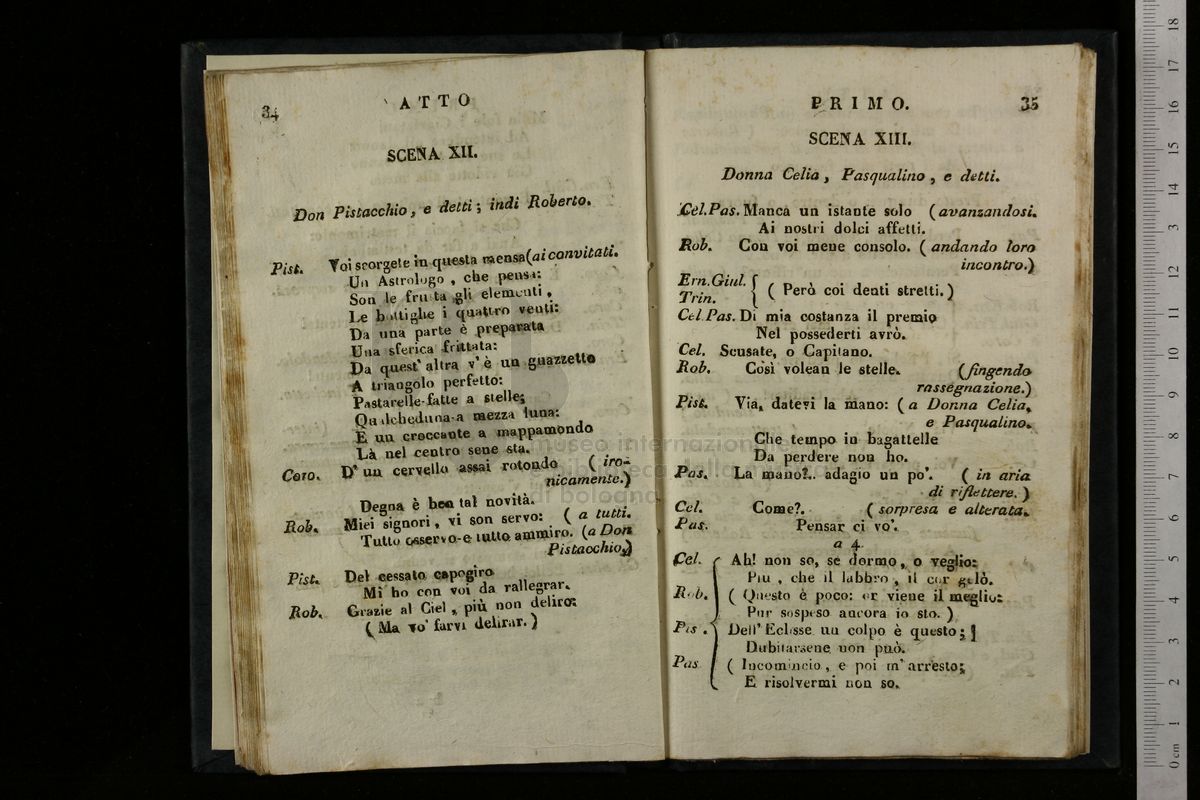 34
ATTO
SCENA XII.
Don Pistacchio, e detti; indi Roberto.
Pist. Voi scorgete in questa mensa (ai convitati.
Un Astrologo, che pensa:
Son le frutta gli elementi,
Le bottighe i quattro venti:
Da una parte è preparata
Una sferica frittata:
Da quest' altra v' è un guazzetto
A triangolo perfetto:
Pastarelle fatte a stelle;
Qualcheduna a mezza luna:
E un croccante a mappamondo
Là nel centro sene sta.
Coro. D' un cervello assai rotondo (iro-
nicamente.)
Degna è ben tal novità.
Rob. Miei signori, vi son servo: (a tutti.
Tutto osservo e tutto ammiro. (a Don
Pistacchio.)
Pist. Del cessato capogiro
Mi ho con voi da rallegrar.
Rob. Grazie al Ciel, più non deliro:
(Ma vo' farvi delirar.)
PRIMO.
35
SCENA XIII.
Donna Celia, Pasqualino, e detti.
Cel.Pas. Manca un istante solo (avanzandosi.
Ai nostri dolci affetti.
Rob. Con voi mene consolo. (andando loro
incontro.)
Ern.Giul. {
Trin. { ( Però coi denti stretti.)
Cel.Pas. Di mia costanza il premio
Nel possederti avrò.
Cel. Scusate, o Capitano.
Rob. Così volean le stelle. (fingendo
rassegnazione.)
Pist. Via, datevi la mano: (a Donna Celia,
e Pasqualino.
Che tempo in bagattelle
Da perdere non ho.
Pas. La mano?.. adagio un po'. (in aria
di riflettere.)
Cel. Come?.. (sorpresa e alterata.
Pas. Pensar ci vo'.
a 4.
Cel. Ah! non so, se dormo, o veglio:
Piu, che il labbro, il cor gelò.
Rob. ( Questo è poco: or viene il meglio:
Pur sospeso ancora io sto. )
Pis. Dell' Eclisse un colpo è questo;
Dubitarsene non può.
Pas. ( Incomincio, e poi m' arresto;
E risolvermi non so.
museo internazionale
biblioteca della musica
di bologna
0 cm 1 2 3 4 5 6 7 8 9 10 11 12 13 14 15 16 17 18